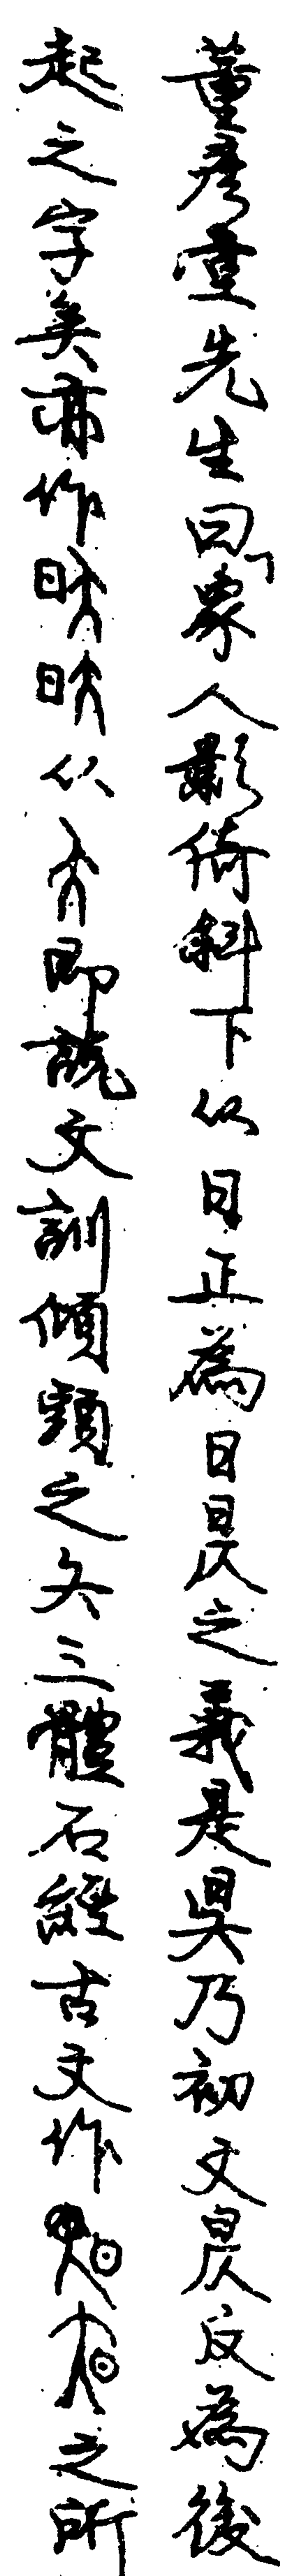 董彥堂先生曰「象人影倚斜下从日正為日昃之義是昗乃初文昃反為後
起之字矣亦作从即說文訓傾頭之夨三體石經古文作之所